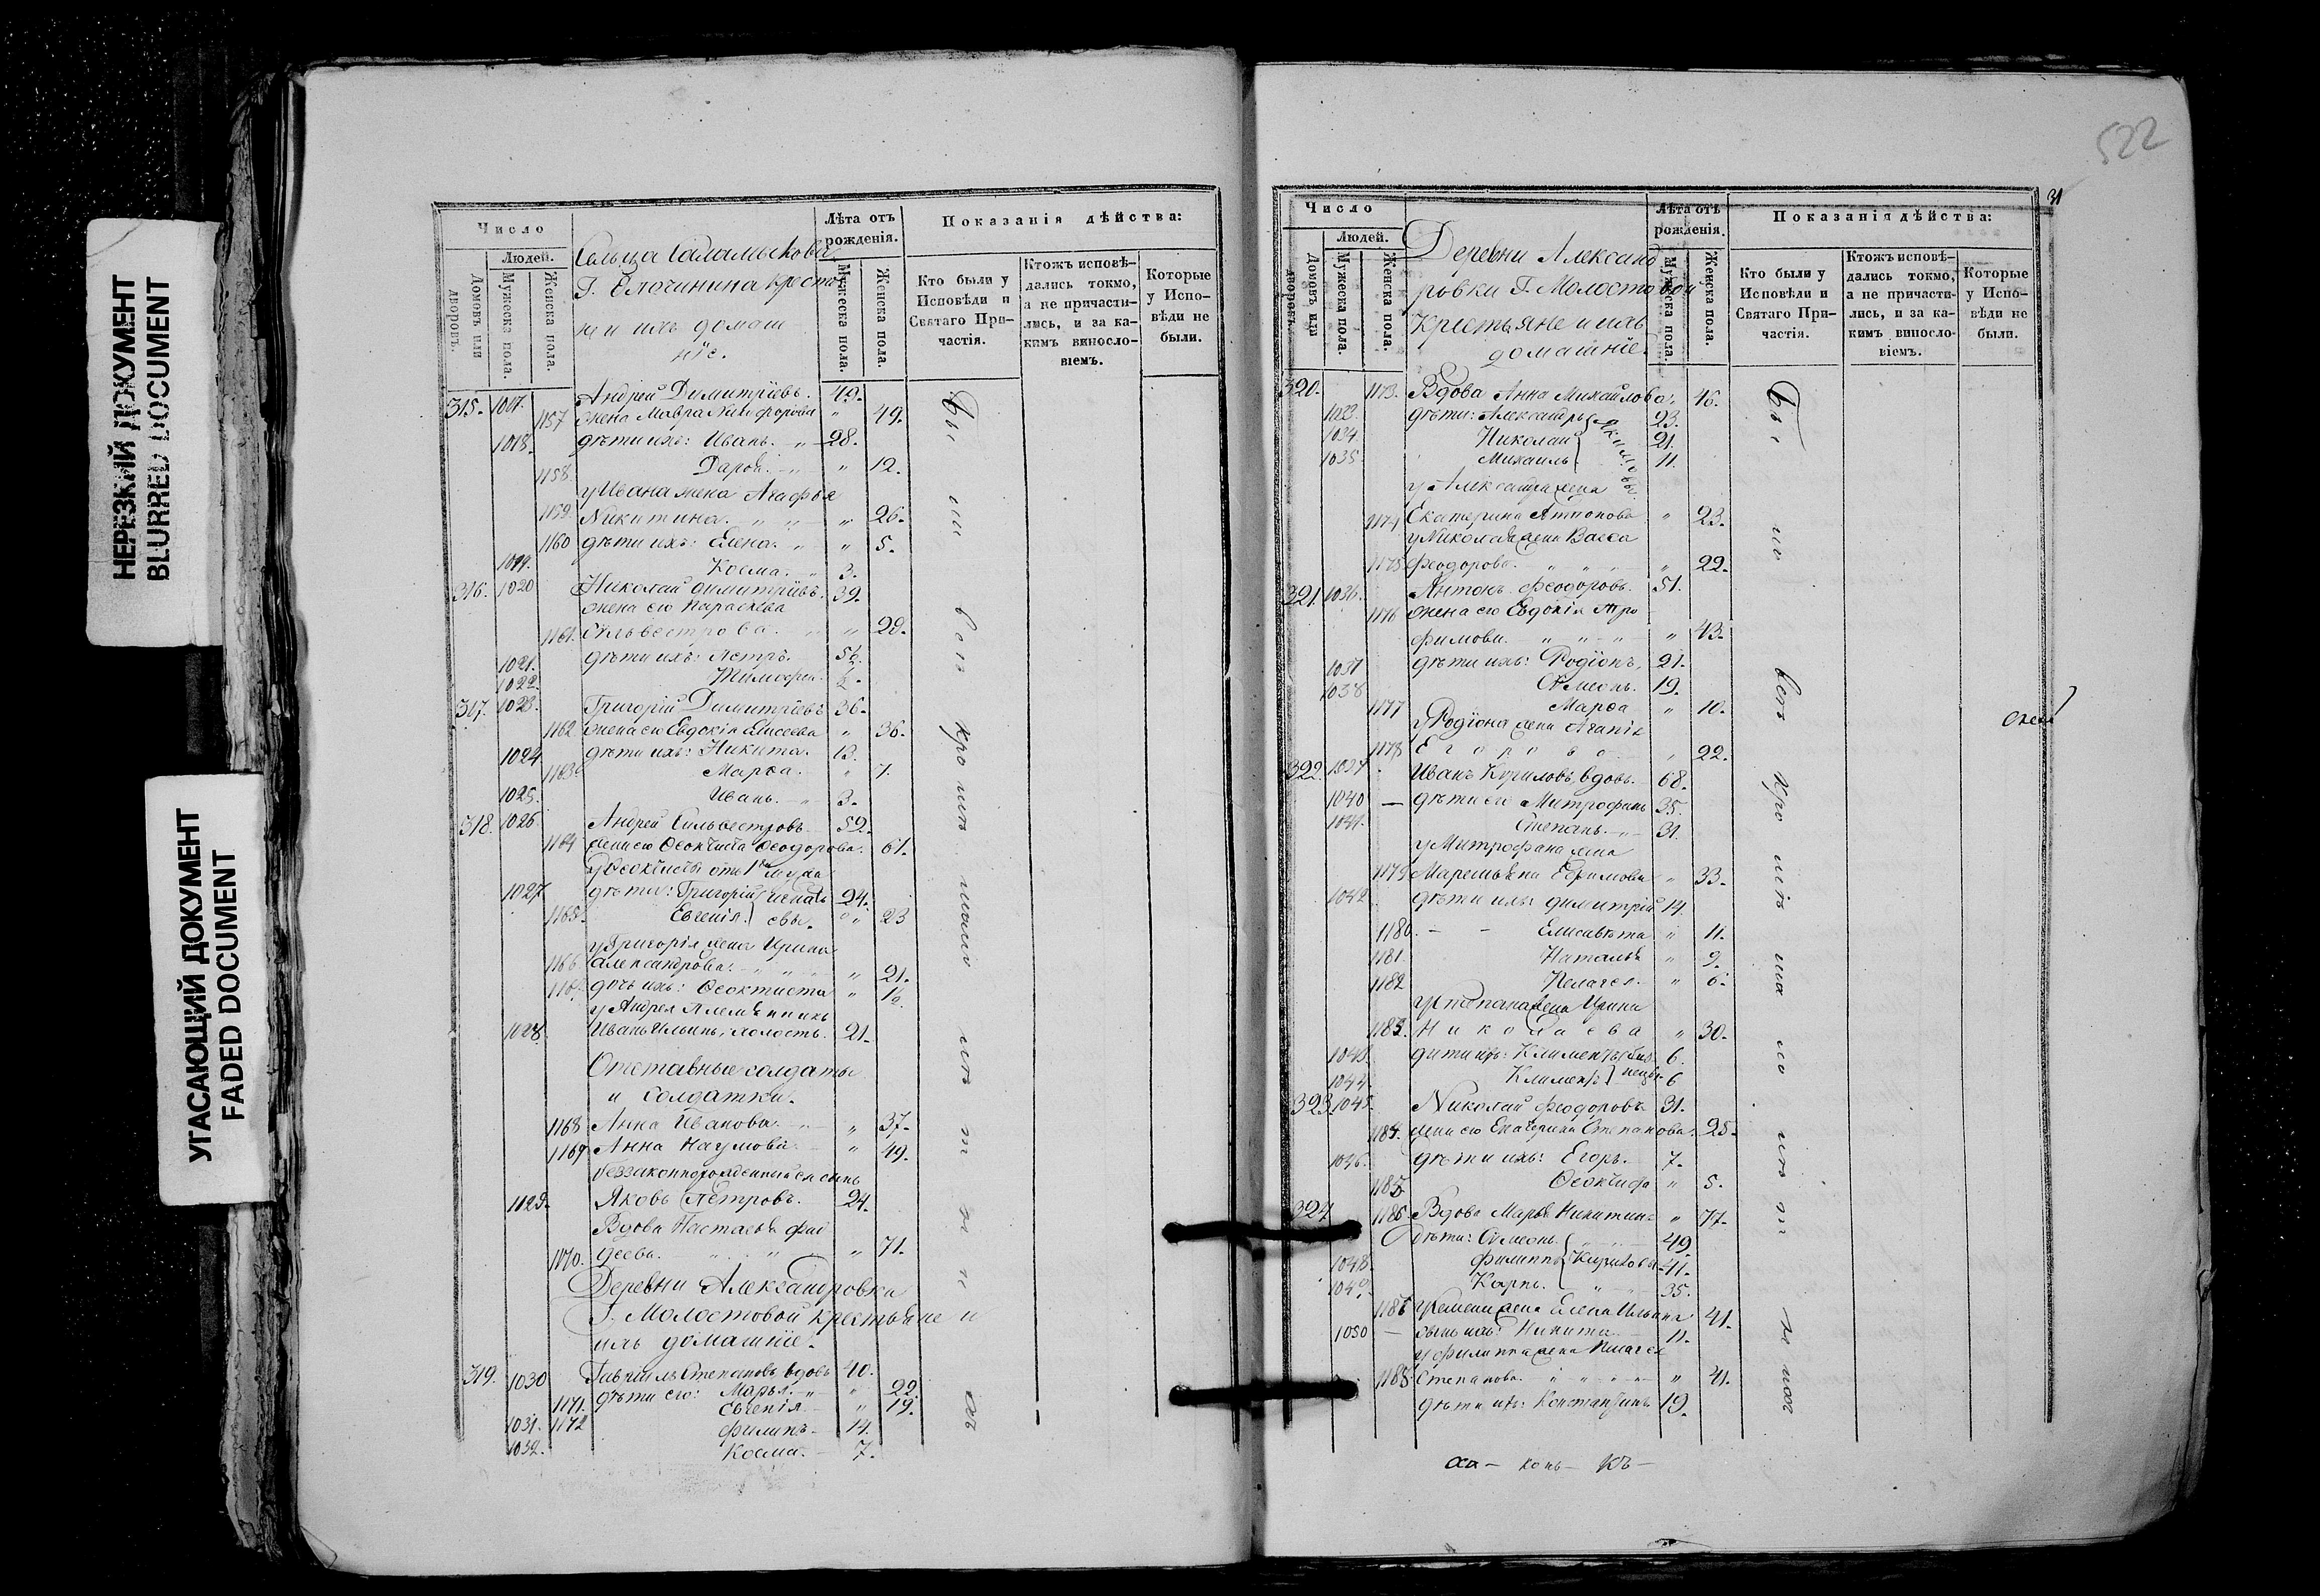 НЕРЕЗКИЙ ДОКУМЕНТ
BLURRED DOCUMENT
УГАСАЮЩИЙ ДОКУМЕНТ
FADED DOCUMENT
Число
Людей.
Домовъ или дворовъ.
Мужеска пола.
Женска пола.
Сельца
Г. Елочинина крестья
не и ихъ домаш
ніе.
Лѣта отъ рожденія.
Мужеска пола.
Женска пола.
Показанія дѣйства:
Кто были у Исповѣди и Святаго Причастія.
Ктожъ исповѣдались токмо, а не причастились, и за какимъ винословіемъ.
Которые у Исповѣди не были.
315. 1017. Андрей Димитріевъ. 49.
1157 жена Мавра Никифорова " 49.
1018. дѣти ихъ: Иванъ. " 28.
1158. Дарья. " " 12.
у Ивана жена Агафья
1159. Никитина. " " " 26.
1160 дѣти ихъ: Елена. " " 5.
1019. Косма. " 3.
316. 1020 Николай Димитріевъ. 39.
жена его Параскева
1161. Сильвестрова. " " 29.
1021. дѣти ихъ: Петръ. 5½.
1022. Тимофей. ½.
317. 1023. Григорій Димитріевъ 36.
1162 жена его Евдокія Елисеева " 36.
1024 дѣти ихъ: Никита. 13.
1163 Марѳа. " 7.
1025. Иванъ. " 3.
318. 1026. Андрей Сильвестровъ. 59.
1164 жена его Ѳеоктиста Ѳеодорова. 61.
у Ѳеоктисты отъ 1го мужа
1027 дѣти: Григорій 24.
1165. Евгенія. " 23
у Григорія жена Ирина
1166 Александрова. " " " 21.
дочь ихъ: Ѳеоктиста " 1½.
у Андрея племянникъ
1028. Иванъ Ильинъ, холостъ. 21.
Отставные солдаты
и солдатки.
1168 Анна Иванова. " 37.
1169 Анна Наумова. " 49.
беззаконнорожденный ея сынъ
1129. Яковъ Петровъ. 24.
Вдова Настасья Фад
1170. деева. " " " 71.
Деревни Александровки
Г. Молостовой крестьяне и
ихъ домашніе.
319. 1030 Гавріилъ Степановъ вдовъ 40.
1171. дѣти его: Марья. " " 22.
1172 Евгенія. " 19.
1031. Филипъ. 14.
1032. Косма. 7.
522
31
Число
Людей.
Домовъ или дворовъ.
Мужеска пола.
Женска пола.
Деревни Александ
ровки Г. Молостовой
Крестьяне и ихъ
домашніе.
Лѣта отъ рожденія.
Мужеска пола.
Женска пола.
Показанія дѣйства:
Кто были у Исповѣди и Святаго Причастія.
Ктожъ исповѣдались токмо, а не причастились, и за какимъ винословіемъ.
Которые у Исповѣди не были.
320. 1173. Вдова Анна Михайлова. 46.
1033. дѣти: Александръ 23.
1034. Николай 21.
1035. Михаилъ 11.
у Александра жена
1174 Екатерина Антонова " 23.
у Николая жена Васса
1175 Ѳеодорова. " " " 22.
321. 1036. Антонъ Ѳеодоровъ. 51.
1176 жена его Евдокія Тро
фимова. " " " 43.
1037 дѣти ихъ: Родіонъ. 21.
1038 Симеонъ. 19.
1177 Марѳа " 10.
у Родіона жена Агапія
1178 Егорова " 22.
322. Иванъ Кириловъ вдовъ. 68.
1040 — дѣти его Митрофанъ 35.
1041. Степанъ. " 31.
у Митрофана жена
1179 Маремьяна Ефимова " 33.
1042. дѣти ихъ: Димитрій 14.
1180. Елисавета " 11.
1181. Наталья " 9.
1182 Пелагея. " 6.
у Степана жена Ирина
1183. Николаева " 30.
1043. дѣти ихъ: Климентъ 6.
1044. Климентъ 6
323. 1045. Николай Ѳеодоровъ 31.
1184. жена его Екатерина Степанова. 25.
1046. дѣти ихъ: Егоръ. 7.
1185 Ѳеоктиста " 5.
324 1186. Вдова Марья Никитина " 77.
дѣти: Симеонъ. 49.
1048. Филиппъ Кириловы 41.
1049. Карпъ. 35.
у Семена жена Елена Ильина 41.
1050 — сынъ ихъ: Никита. 11.
у Филиппа жена Пелагея
1188 Степанова. " " " " 41.
дѣти ихъ: Константинъ 19.